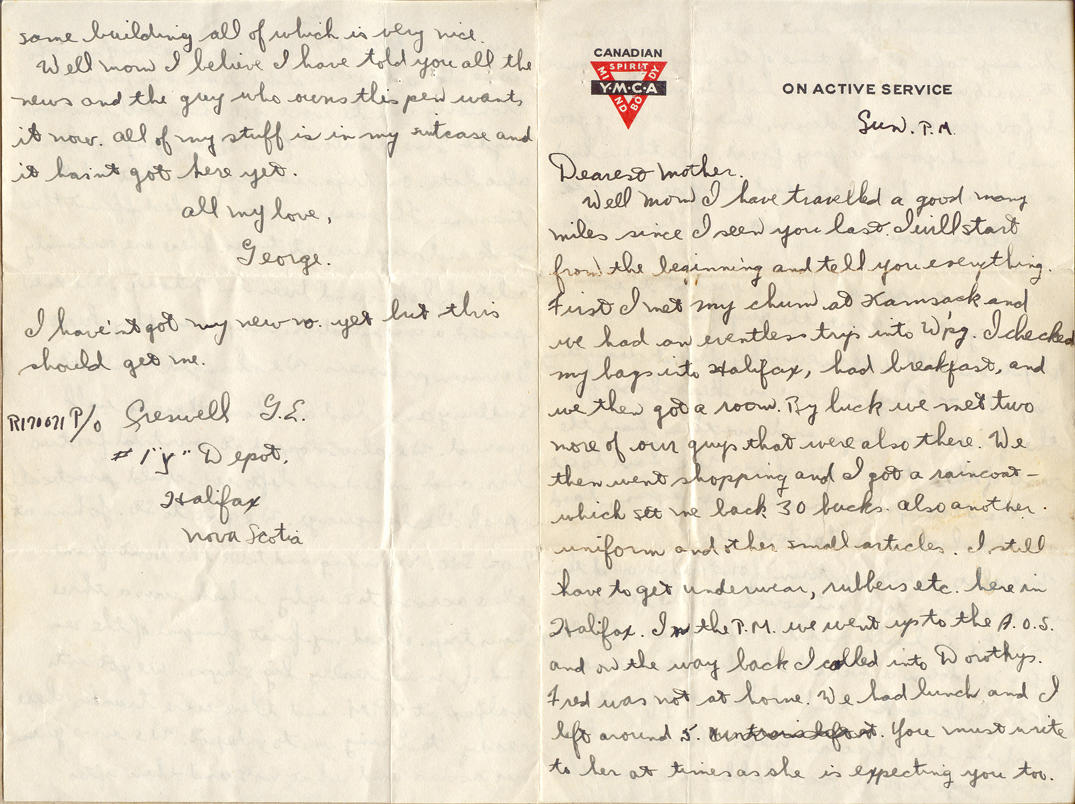 same building all of which is very nice.
Well mom I believe I have told you all the
news and the guy who owns this pen wants
it now. all of my stuff is in my suitcase and
it hain't got here yet.
all my love,
George.
I have'nt got my new no. yet but this
should get me.
R170671 P/O Greswell G.E.
#1 "Y" Depot,
Halifax
Nova Scotia
CANADIAN
SPIRIT
MIND
BODY
Y·M·C·A
ON ACTIVE SERVICE
Sun. P.M.
Dearest Mother.
Well mom I have travelled a good many
miles since I seen you last. I will start
from the beginning and tell you everything.
First I met my chum at Kamsack and
we had an eventless trip into W'pg. I checked
my bags into Halifax, had breakfast, and
we then got a room. By luck we met two
more of our guys that were also there. We
then went shopping and I got a raincoat -
which set me back 30 bucks. also another.
uniform and other small articles. I still
have to get underwear, rubbers etc. here in
Halifax. In the P.M. we went up to the A.O.S.
and on the way back I called into Dorothys.
Fred was not at home. We had lunch and I
left around 5. You must write
to her at times as she is expecting you too.